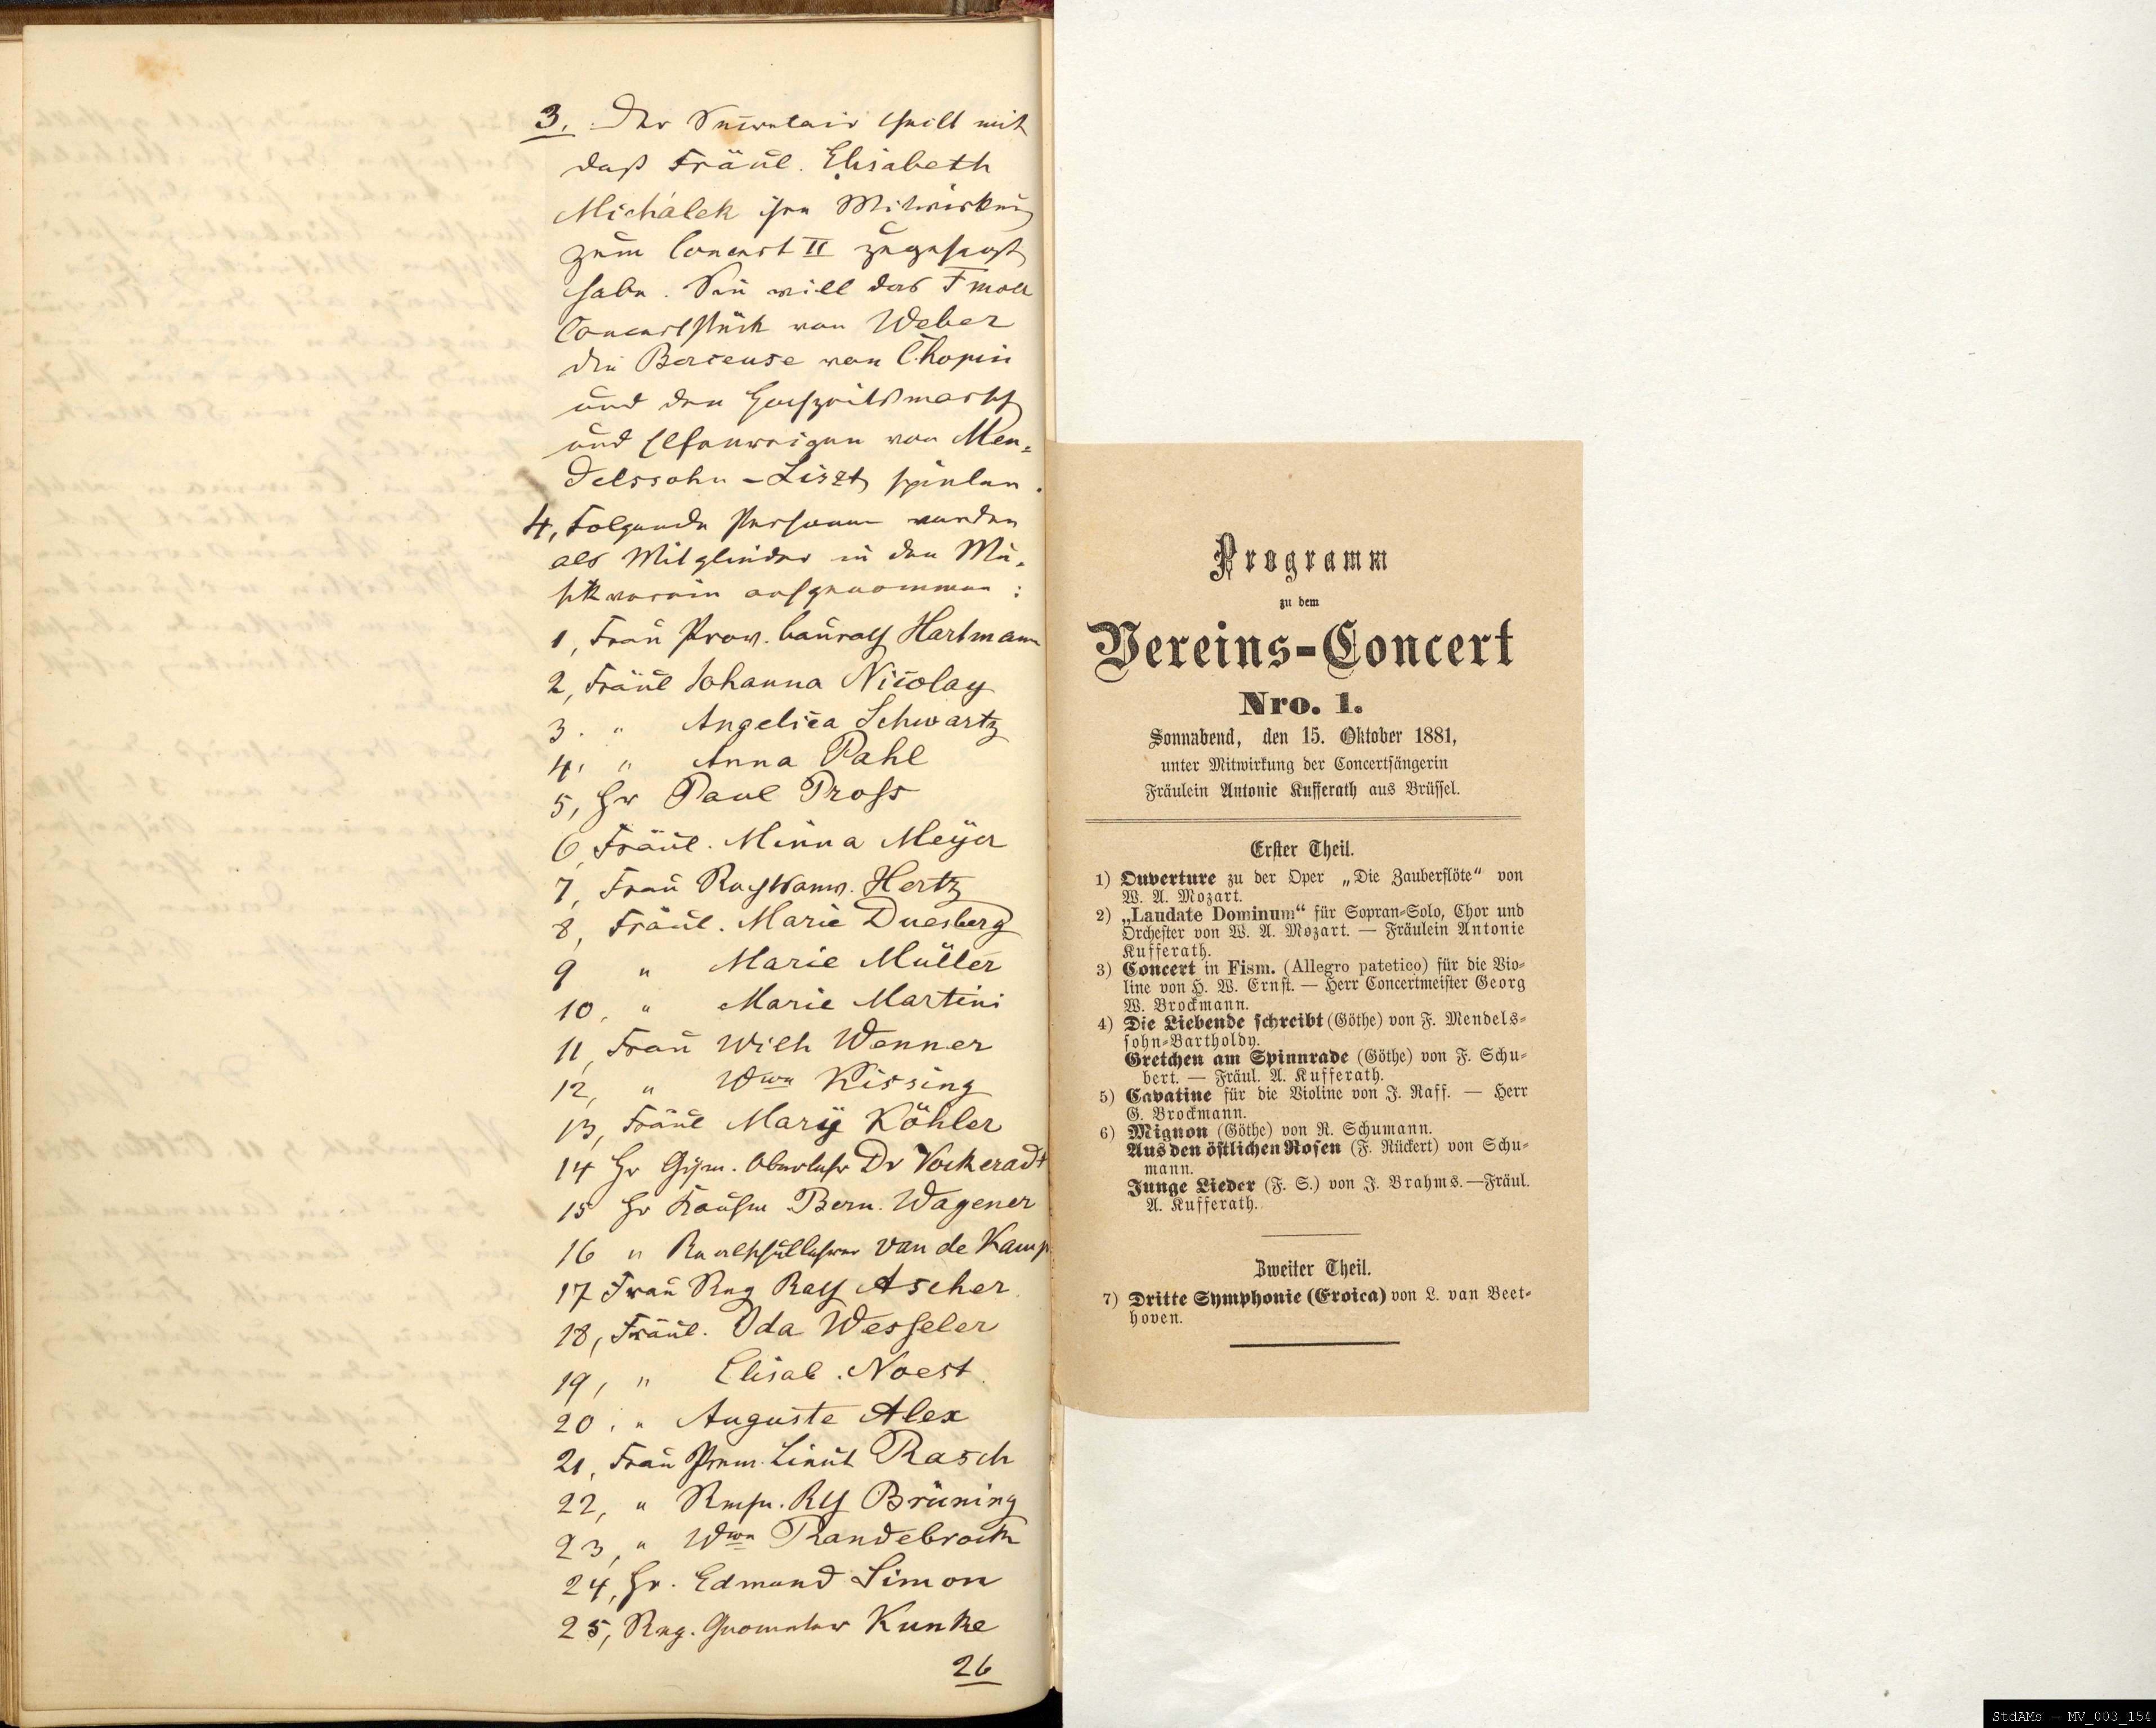 3. Der Secretair theilt mit
daß Fräul. Elisabeth
Michálek ihre Mitwirkung
zum Concert II zugesagt
habe. Sie will das Fmoll
Concertstück von Weber
die Berceuse von Chopin
und den Hochzeitsmarsch
und Elfenreigen von Men-
delssohn-Liszt spielen.
4, Folgende Personen wurden
als Mitglieder in den Mu-
sikverein aufgenommen:
1, Frau Prov. Baurath Hartmann
2, Fräul Johanna Nicolay
3. " Angelica Schwartz
4, " Anna Pahl
5, Hr Paul Pross
6, Fräul. Minna Meyer
7, Frau Rechtsanw. Hertz
8, Fräul. Marie Duesberg
9 " Marie Müller
10, " Marie Martini
11, Frau Wilh Wenner
12, " Wwe Kissing
13, Fräul Mary Köhler
14 Hr Gym. Oberlehr Dr Vockeradt
15 Hr Kaufm Bern. Wagener
16 " Realschullehrer van de Kamp
17 Frau Reg Rath Ascher
18, Fräul. Ida Wesseler
19, " Elisab. Noest
20. " Auguste Alex
21, Frau Prem. Lieut Rasch
22, " Rth Brüning
23, " Wwe Randebrock
24, Hr. Edmund Simon
25, Reg. Geometer Kunke
26
Programm
zu dem
Vereins-Concert
Nro. 1.
Sonnabend, den 15. Oktober 1881,
unter Mitwirkung der Concertsängerin
Fräulein Antonie Kufferath aus Brüssel.
Erster Theil.
1) Ouverture zu der Oper „Die Zauberflöte“ von
W. A. Mozart.
2) „Laudate Dominum“ für Sopran-Solo, Chor und
Orchester von W. A. Mozart. — Fräulein Antonie
Kufferath.
3) Concert in Fism. (Allegro patetico) für die Vio-
line von H. W. Ernst. — Herr Concertmeister Georg
W. Brockmann.
4) Die Liebende schreibt (Göthe) von F. Mendels-
sohn-Bartholdy.
Gretchen am Spinnrade (Göthe) von F. Schu-
bert. — Fräul. A. Kufferath.
5) Cavatine für die Violine von J. Raff. — Herr
G. Brockmann.
6) Mignon (Göthe) von R. Schumann.
Aus den östlichen Rosen (F. Rückert) von Schu-
mann.
Junge Lieder (F. S.) von J. Brahms.—Fräul.
A. Kufferath.
Zweiter Theil.
7) Dritte Symphonie (Eroica) von L. van Beet-
hoven.
StdAMs - MV_003_154